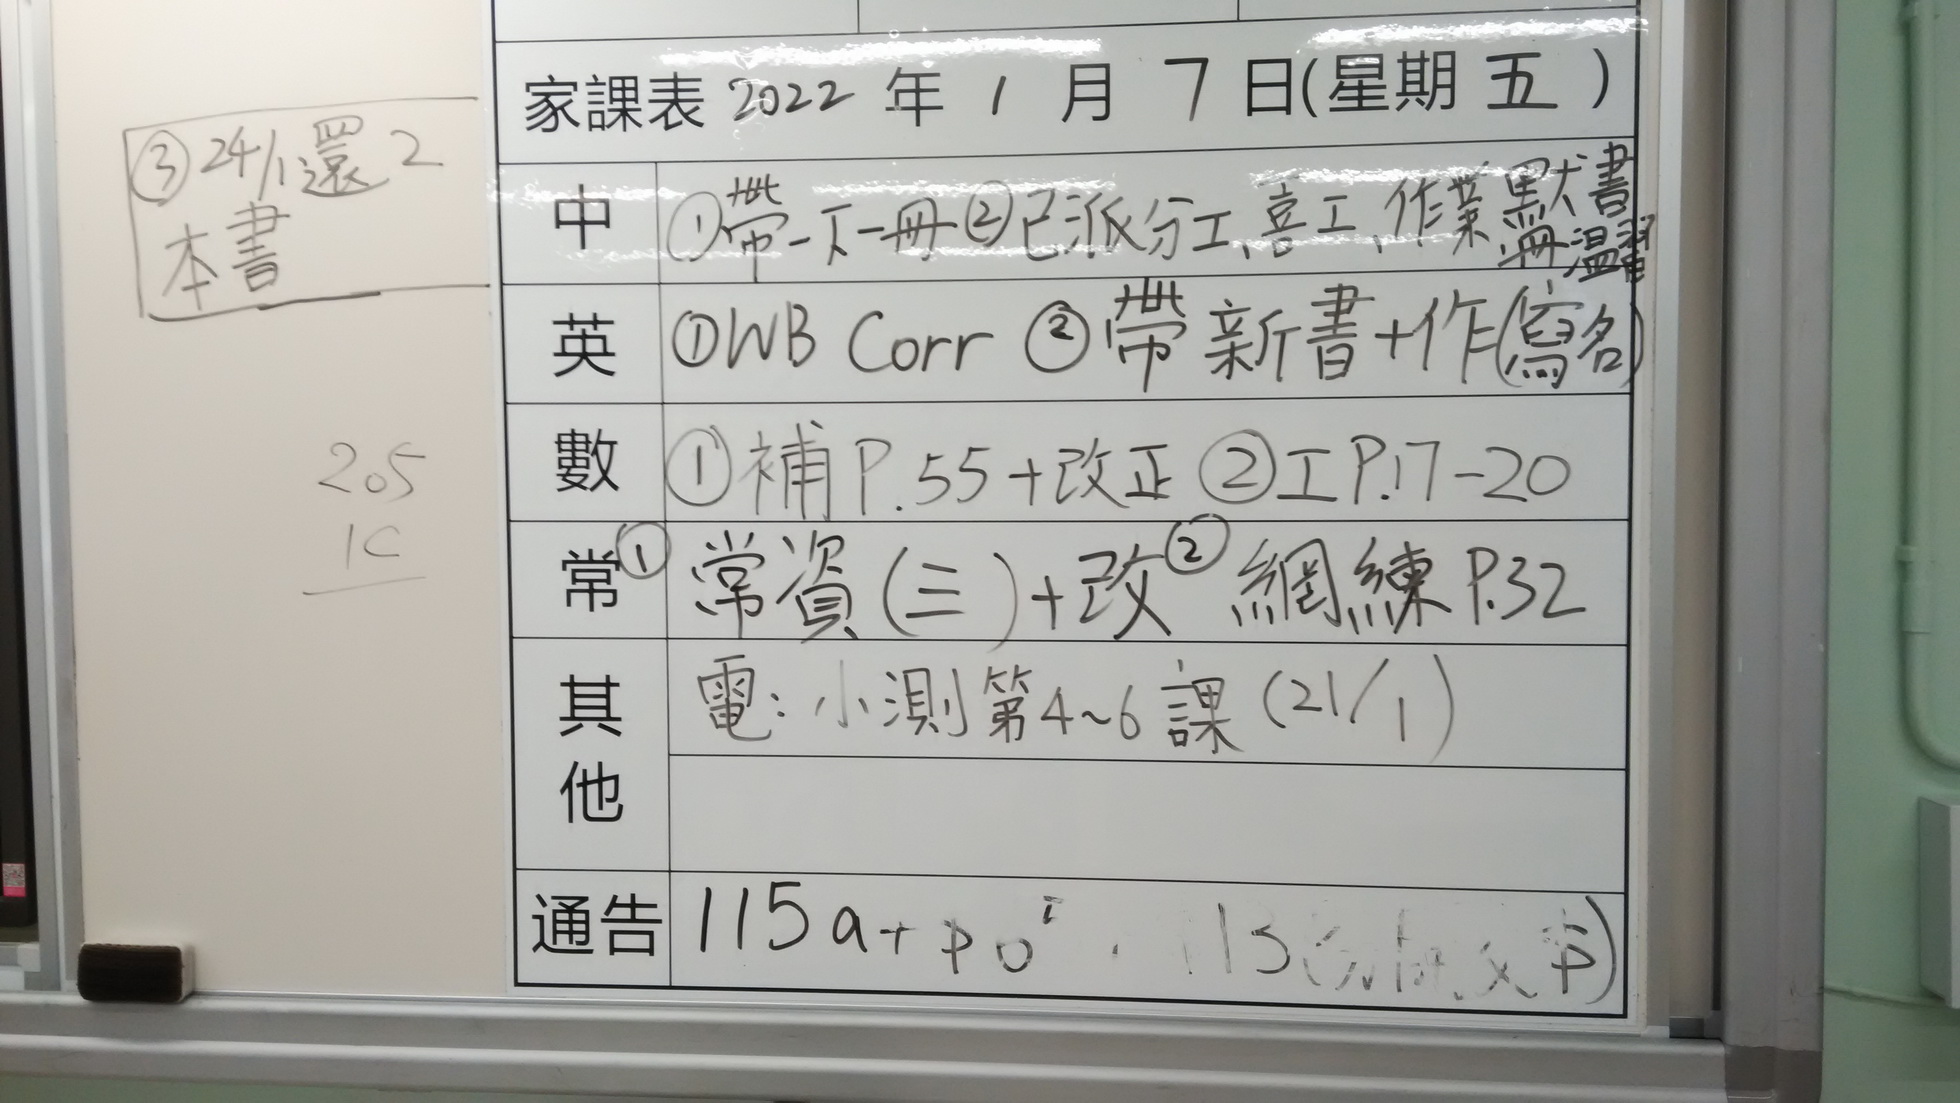 家課表 2022 年 1 月 7 日(星期 五 )
③24/1還2
本書
中 ①帶一下一冊②已派分工、喜工、作業、默書
冊溫習
英 ①WB Corr ②帶新書+作(寫名)
數 ①補P.55+改正 ②工P.17-20
常 ①常資(三)+改 ②網練P.32
205
1C
其他 電:小測第4~6課(21/1)
通告 115a+